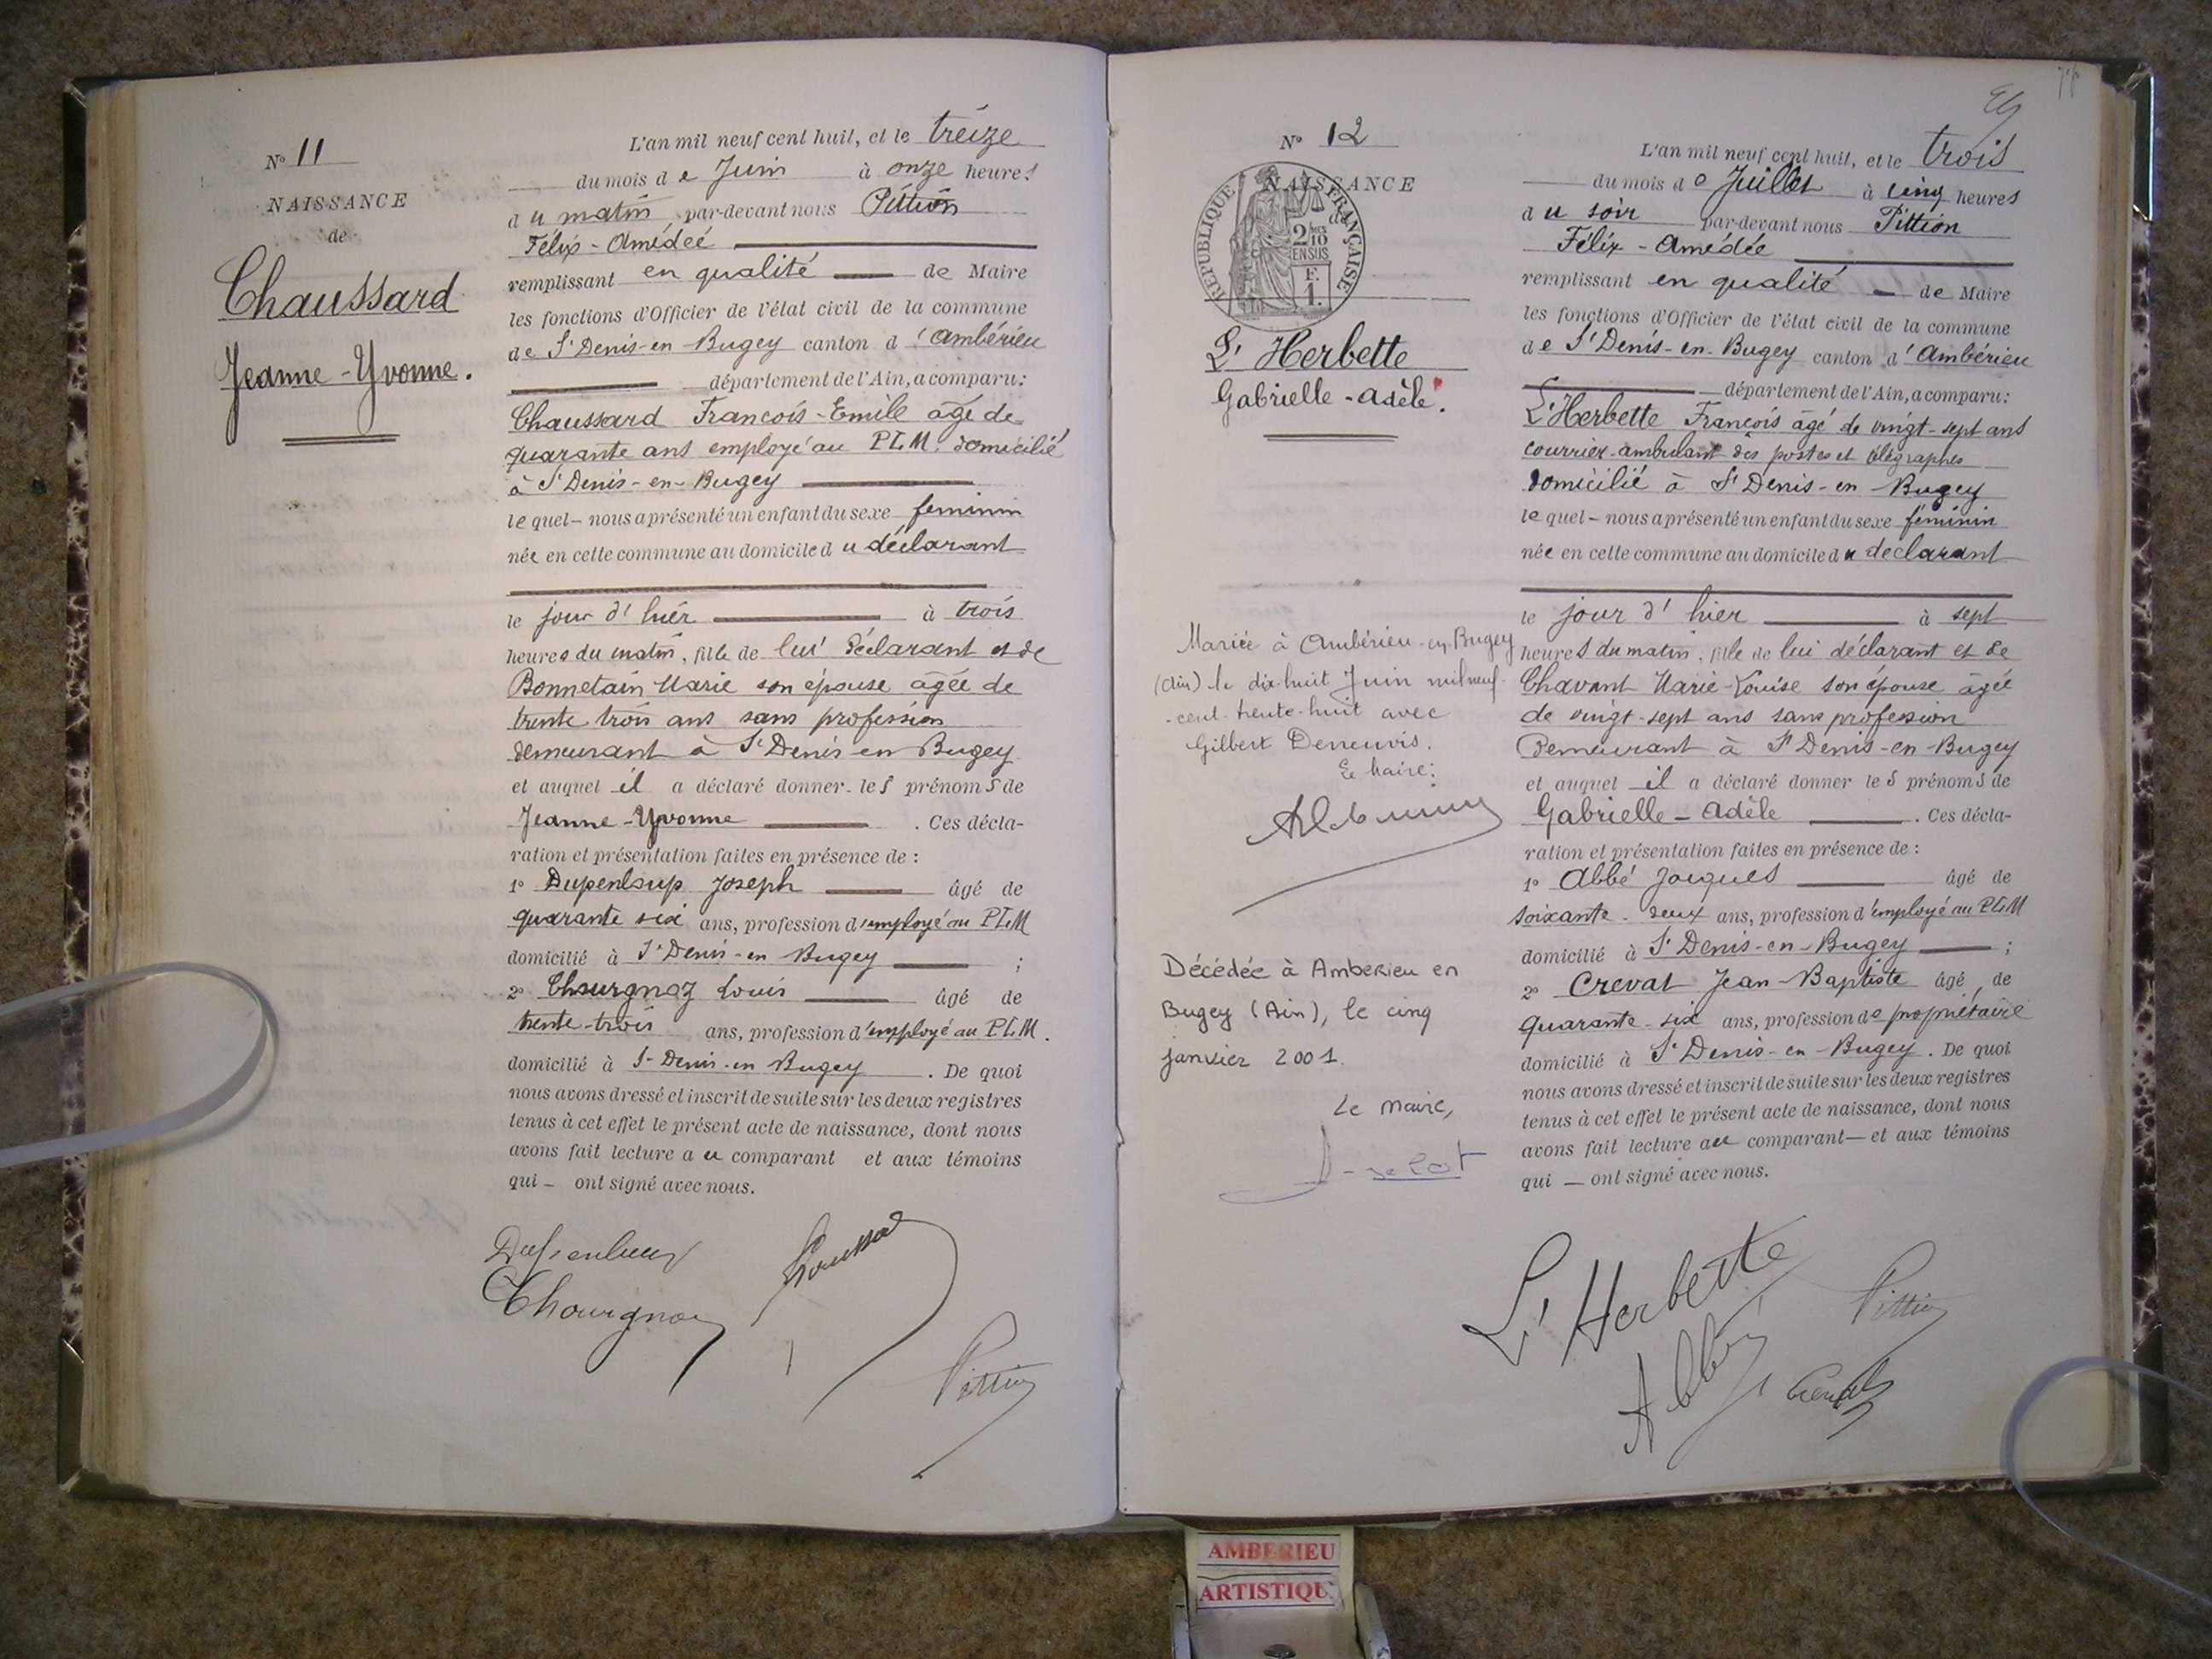 N° 11
NAISSANCE
de
Chaussard
Jeanne-Yvonne.
L'an mil neuf cent huit, et le treize
du mois de Juin à onze heures
du matin par-devant nous Pittion
Félix-Amédée
remplissant en qualité de Maire
les fonctions d'Officier de l'état civil de la commune
de St Denis-en-Bugey canton d'Ambérieu
département de l'Ain, a comparu:
Chaussard François-Emile âgé de
quarante ans employé au PLM. domicilié
à St Denis-en-Bugey
lequel nous a présenté un enfant du sexe féminin
née en cette commune au domicile du déclarant
le jour d'hier à trois
heures du matin, fille de lui déclarant et de
Bonnetain Marie son épouse âgée de
trente trois ans sans profession
demeurant à St Denis en Bugey
et auquel il a déclaré donner les prénoms de
Jeanne-Yvonne . Ces décla-
ration et présentation faites en présence de :
1° Dupenloup Joseph âgé de
quarante six ans, profession d'employé au PLM
domicilié à St Denis-en Bugey ;
2° Thourgnoz Louis âgé de
trente-trois ans, profession d'employé au PLM.
domicilié à St Denis-en Bugey . De quoi
nous avons dressé et inscrit de suite sur les deux registres
tenus à cet effet le présent acte de naissance, dont nous
avons fait lecture au comparant et aux témoins
qui — ont signé avec nous.
Dupenloup
Thourgnoz
Pittion
N° 12
NAISSANCE
de
RÉPUBLIQUE FRANÇAISE
2/10
EN SUS
F.
1.
L'Herbette
Gabrielle-Adèle.
Mariée à Ambérieu-en-Bugey
(Ain) le dix-huit Juin mil neuf-
-cent-trente-huit avec
Gilbert Deneuvis.
Le Maire:
Décédée à Amberieu en
Bugey (Ain), le cinq
janvier 2001.
Le maire,
L'an mil neuf cent huit, et le trois
du mois de Juillet à cinq heures
du soir par-devant nous Pittion
Félix-Amédée
remplissant en qualité — de Maire
les fonctions d'Officier de l'état civil de la commune
de St Denis-en-Bugey canton d'Ambérieu
département de l'Ain, a comparu:
L'Herbette François âgé de vingt-sept ans
courrier-ambulant des postes et télégraphes
domicilié à St Denis-en-Bugey
lequel — nous a présenté un enfant du sexe féminin
née en cette commune au domicile du déclarant
le jour d'hier à sept
heures du matin, fille de lui déclarant et de
Chavant Marie-Louise son épouse âgée
de vingt-sept ans sans profession
demeurant à St Denis-en-Bugey
et auquel il a déclaré donner les prénoms de
Gabrielle-Adèle . Ces décla-
ration et présentation faites en présence de :
1° Abbé Jacques âgé de
soixante-deux ans, profession d'employé au PLM
domicilié à St Denis-en-Bugey ;
2° Creval Jean-Baptiste âgé de
quarante-six ans, profession de propriétaire
domicilié à St Denis-en-Bugey. De quoi
nous avons dressé et inscrit de suite sur les deux registres
tenus à cet effet le présent acte de naissance, dont nous
avons fait lecture au comparant — et aux témoins
qui — ont signé avec nous.
L'Herbette
Pittion
Abbé
AMBERIEU
ARTISTIQUE